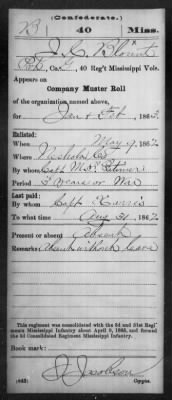 (Confederate.)
B 40 Miss.
J. A. Blount
Pvt, Co. 40 Reg't Mississippi Vols.
Appears on
Company Muster Roll
of the organization named above,
for Jan & Feb, 1863
Enlisted:
When May 9, 1862
Where Neshoba Co
By whom Capt
Period 3 years or War
Last paid:
By whom Capt Harris
To what time Aug 31, 1862
Present or absent Absent
Remarks: Absent without leave
This regiment was consolidated with the 3d and 31st Regiments Mississippi Infantry about April 9, 1865, and formed the 3d Consolidated Regiment Mississippi Infantry.
Book mark:
J. Jacobson
(642) Copyist.